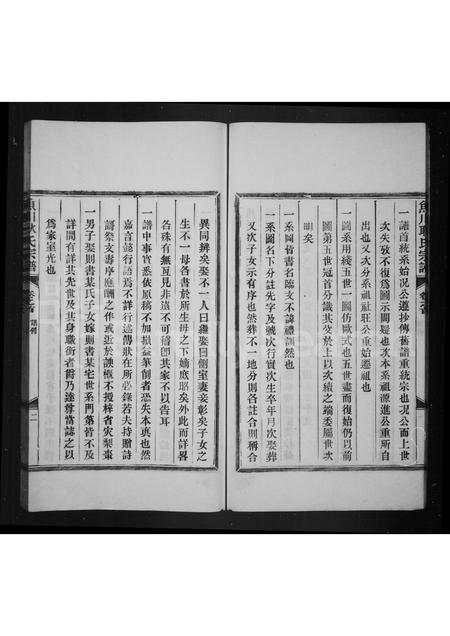 一譜首統系始況公遵抄傳舊譜重統宗也況公而上世
次失攷不復爲圖示闕疑也次本系祖源進公重所自
出也又次分系祖社旺公重始遷祖也
一圖系用綫五世一圖仿歐式也五世盡而復始仍以前
圖第五世冠首分識其爻於上以次續之端委屬世次
明矣
一系圖皆書名臨文不諱禮訓然也
一系圖名下分註先字及號次行實次生卒年月次娶葬
又次子女示有序也然葬不一地分則各註合則稱合
異同辨矣娶不一人曰繼娶曰側室妻妾彰矣子女之
生不一母各書於所生母之下嫡庶耶矣外此而詳畧
各殊有無互見非遺不可稽卽其家不以告耳
一譜中事實悉依原稿不加損益筆削者恐失本眞也然
嘉言懿行語焉不詳行述傳狀在所必錄若夫持贈詩
壽祭文壽序庭酬之作或近於諛槪不援梓省灾梨棗
一男子娶則書某氏子女嫁則書某宅世系門第皆不及
詳間有詳其先世及其身職銜者爵乃達尊當誌之以
爲家室光也
魚川耿氏宗譜
卷首 譜例
二
魚川耿氏宗譜
卷首